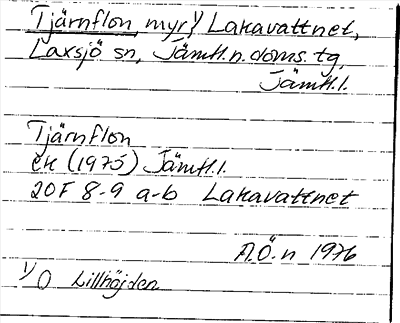 Tjärnflon, myr¹⁾ Lakavattnet,
Laxsjö sn, Jämtl. n. doms. tg,
Jämtl. l.
Tjärnflon
ek (1975) Jämtl. l.
20F 8-9 a-b Lakavattnet
A.Ö.n 1976
1) O Lillhöjden